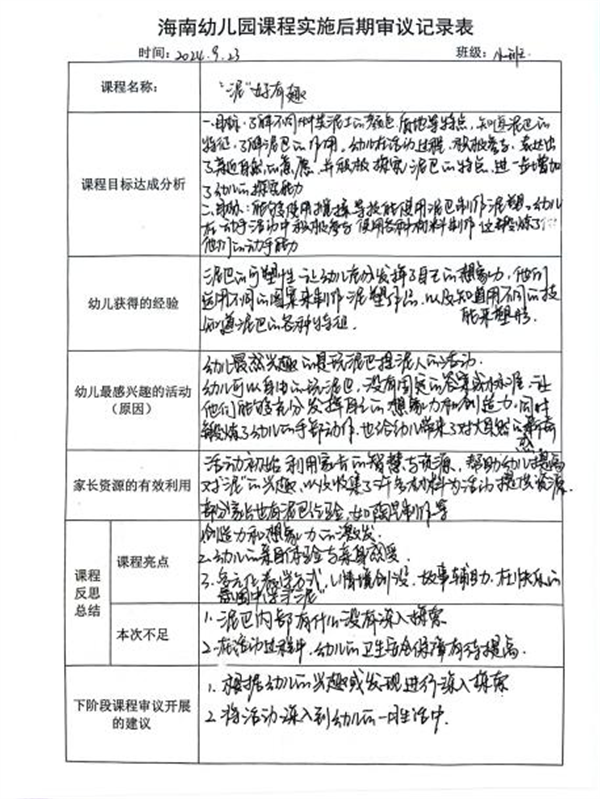 海南幼儿园课程实施后期审议记录表
时间：2024.9.23 班级：小班
课程名称： “泥”好有趣
课程目标达成分析
一、目标：了解不同种类泥土的颜色、质地等特点，知道泥巴的
特征，了解泥巴的作用。幼儿在活动过程，积极参与，表达出
了亲近自然的意愿，并积极探究泥巴的特点，进一步增加
了幼儿的探究能力
二、目标：能够使用搓、揉等技能使用泥巴制作泥塑。幼儿
在动手活动中积极参与使用各种材料制作，也锻炼了
他们的动手能力
幼儿获得的经验
泥巴的可塑性，让幼儿充分发挥了自己的想象力，他们
运用不同的图案来制作泥塑作品，以及知道用不同的技
能来塑形。
知道泥巴的各种特征
幼儿最感兴趣的活动
（原因）
幼儿最感兴趣的是玩泥巴捏泥人的活动。
幼儿可以自由的玩泥巴，没有固定的答案或标准，让
他们能够充分发挥自己的想象力和创造力，同时
锻炼了幼儿的手部动作，也给幼儿带来了对大自然的新奇
感
家长资源的有效利用
活动初始利用家长的智慧与资源，帮助幼儿提高
对“泥”的兴趣，以及收集了许多材料为活动提供资源
部分家长也有泥巴经验，如陶艺制作等
课程
反思
总结
课程亮点
创造力和想象力的激发
2.幼儿的亲身体验与亲身感受
3.多元化教学方式，以情境创设，故事辅助，在快乐的
氛围中学习“泥”
本次不足
1.泥巴内部有什么没有深入探索
2.在活动过程中，幼儿的卫生安全保障有待提高.
下阶段课程审议开展
的建议
1.根据幼儿的兴趣或发现进行深入探索
2.将活动深入到幼儿的一日生活中.